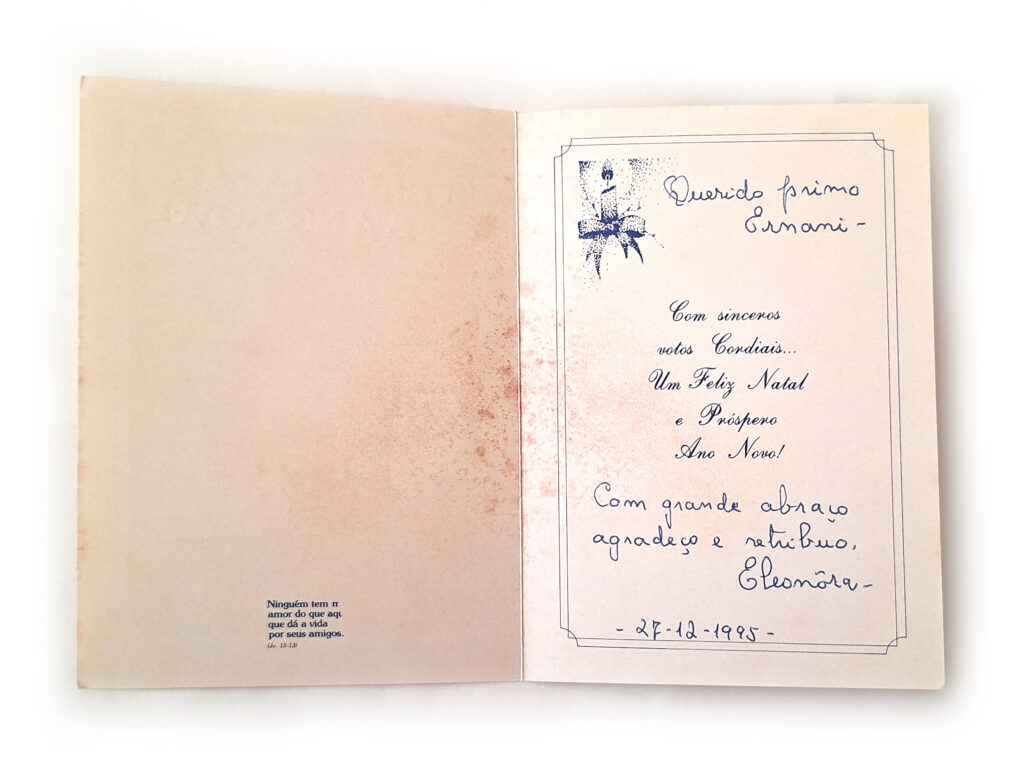 Ninguém tem m
amor do que aqu
que dá a vida
por seus amigos.
(Jo 15-13)
Querido primo
Ernani -
Com sinceros
votos Cordiais...
Um Feliz Natal
e Próspero
Ano Novo!
Com grande abraço
agradeço e retribuo.
Eleonôra -
- 27-12-1995 -